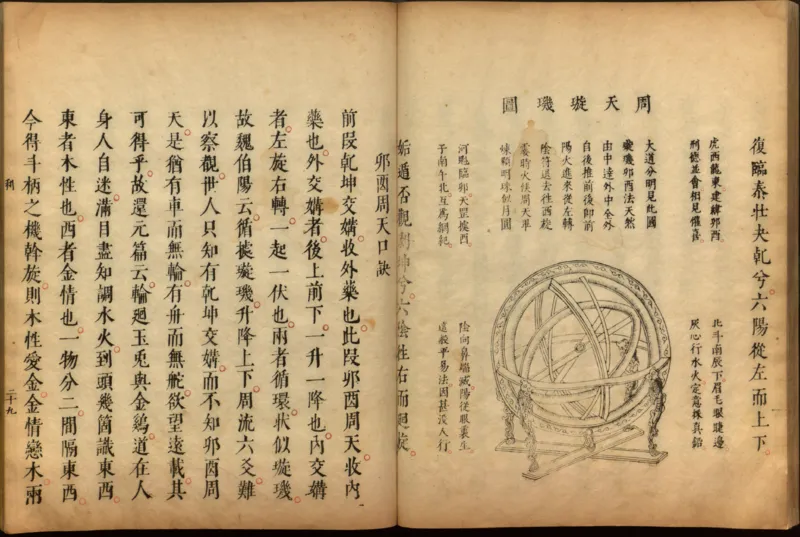 周天璇璣圖
復臨泰壯夬乹兮六陽從左而上下
虎西龍東建緯卯酉
刑德基會相見懽喜
北斗南辰下眉毛眼睫邊
灰心行水火定意採真鉛
大道分明見此圖
璇璣卯酉法天然
由中達外中全外
自後推前後即前
陽火進來從左轉
陰符退去往西旋
霎時火候周天畢
煉顆明珠似月圓
河魁臨卯天罡據酉
子南午北互爲綱紀
陰向鼻端滅陽從眼裏生
這般平易法因甚没人行
姤遯否觀剝坤兮六陰往右而廻旋
卯酉周天口訣
前段乾坤交媾收外藥也此段卯酉周天收內
藥也外交媾者後上前下一升一降也內交媾
者左旋右轉一起一伏也兩者循環狀似璇璣
故魏伯陽云循據璇璣升降上下周流六爻難
以察觀世人只知有乾坤交媾而不知卯酉周
天是猶有車而無輪有舟而無舵欲望遠載其
可得乎故還元篇云輪廻玉兎與金鷄道在人
身人自迷滿目盡知調水火到頭幾箇識東西
東者木性也西者金情也一物分二間隔東西
今得斗柄之機斡旋則木性愛金金情戀木兩
利
二十九